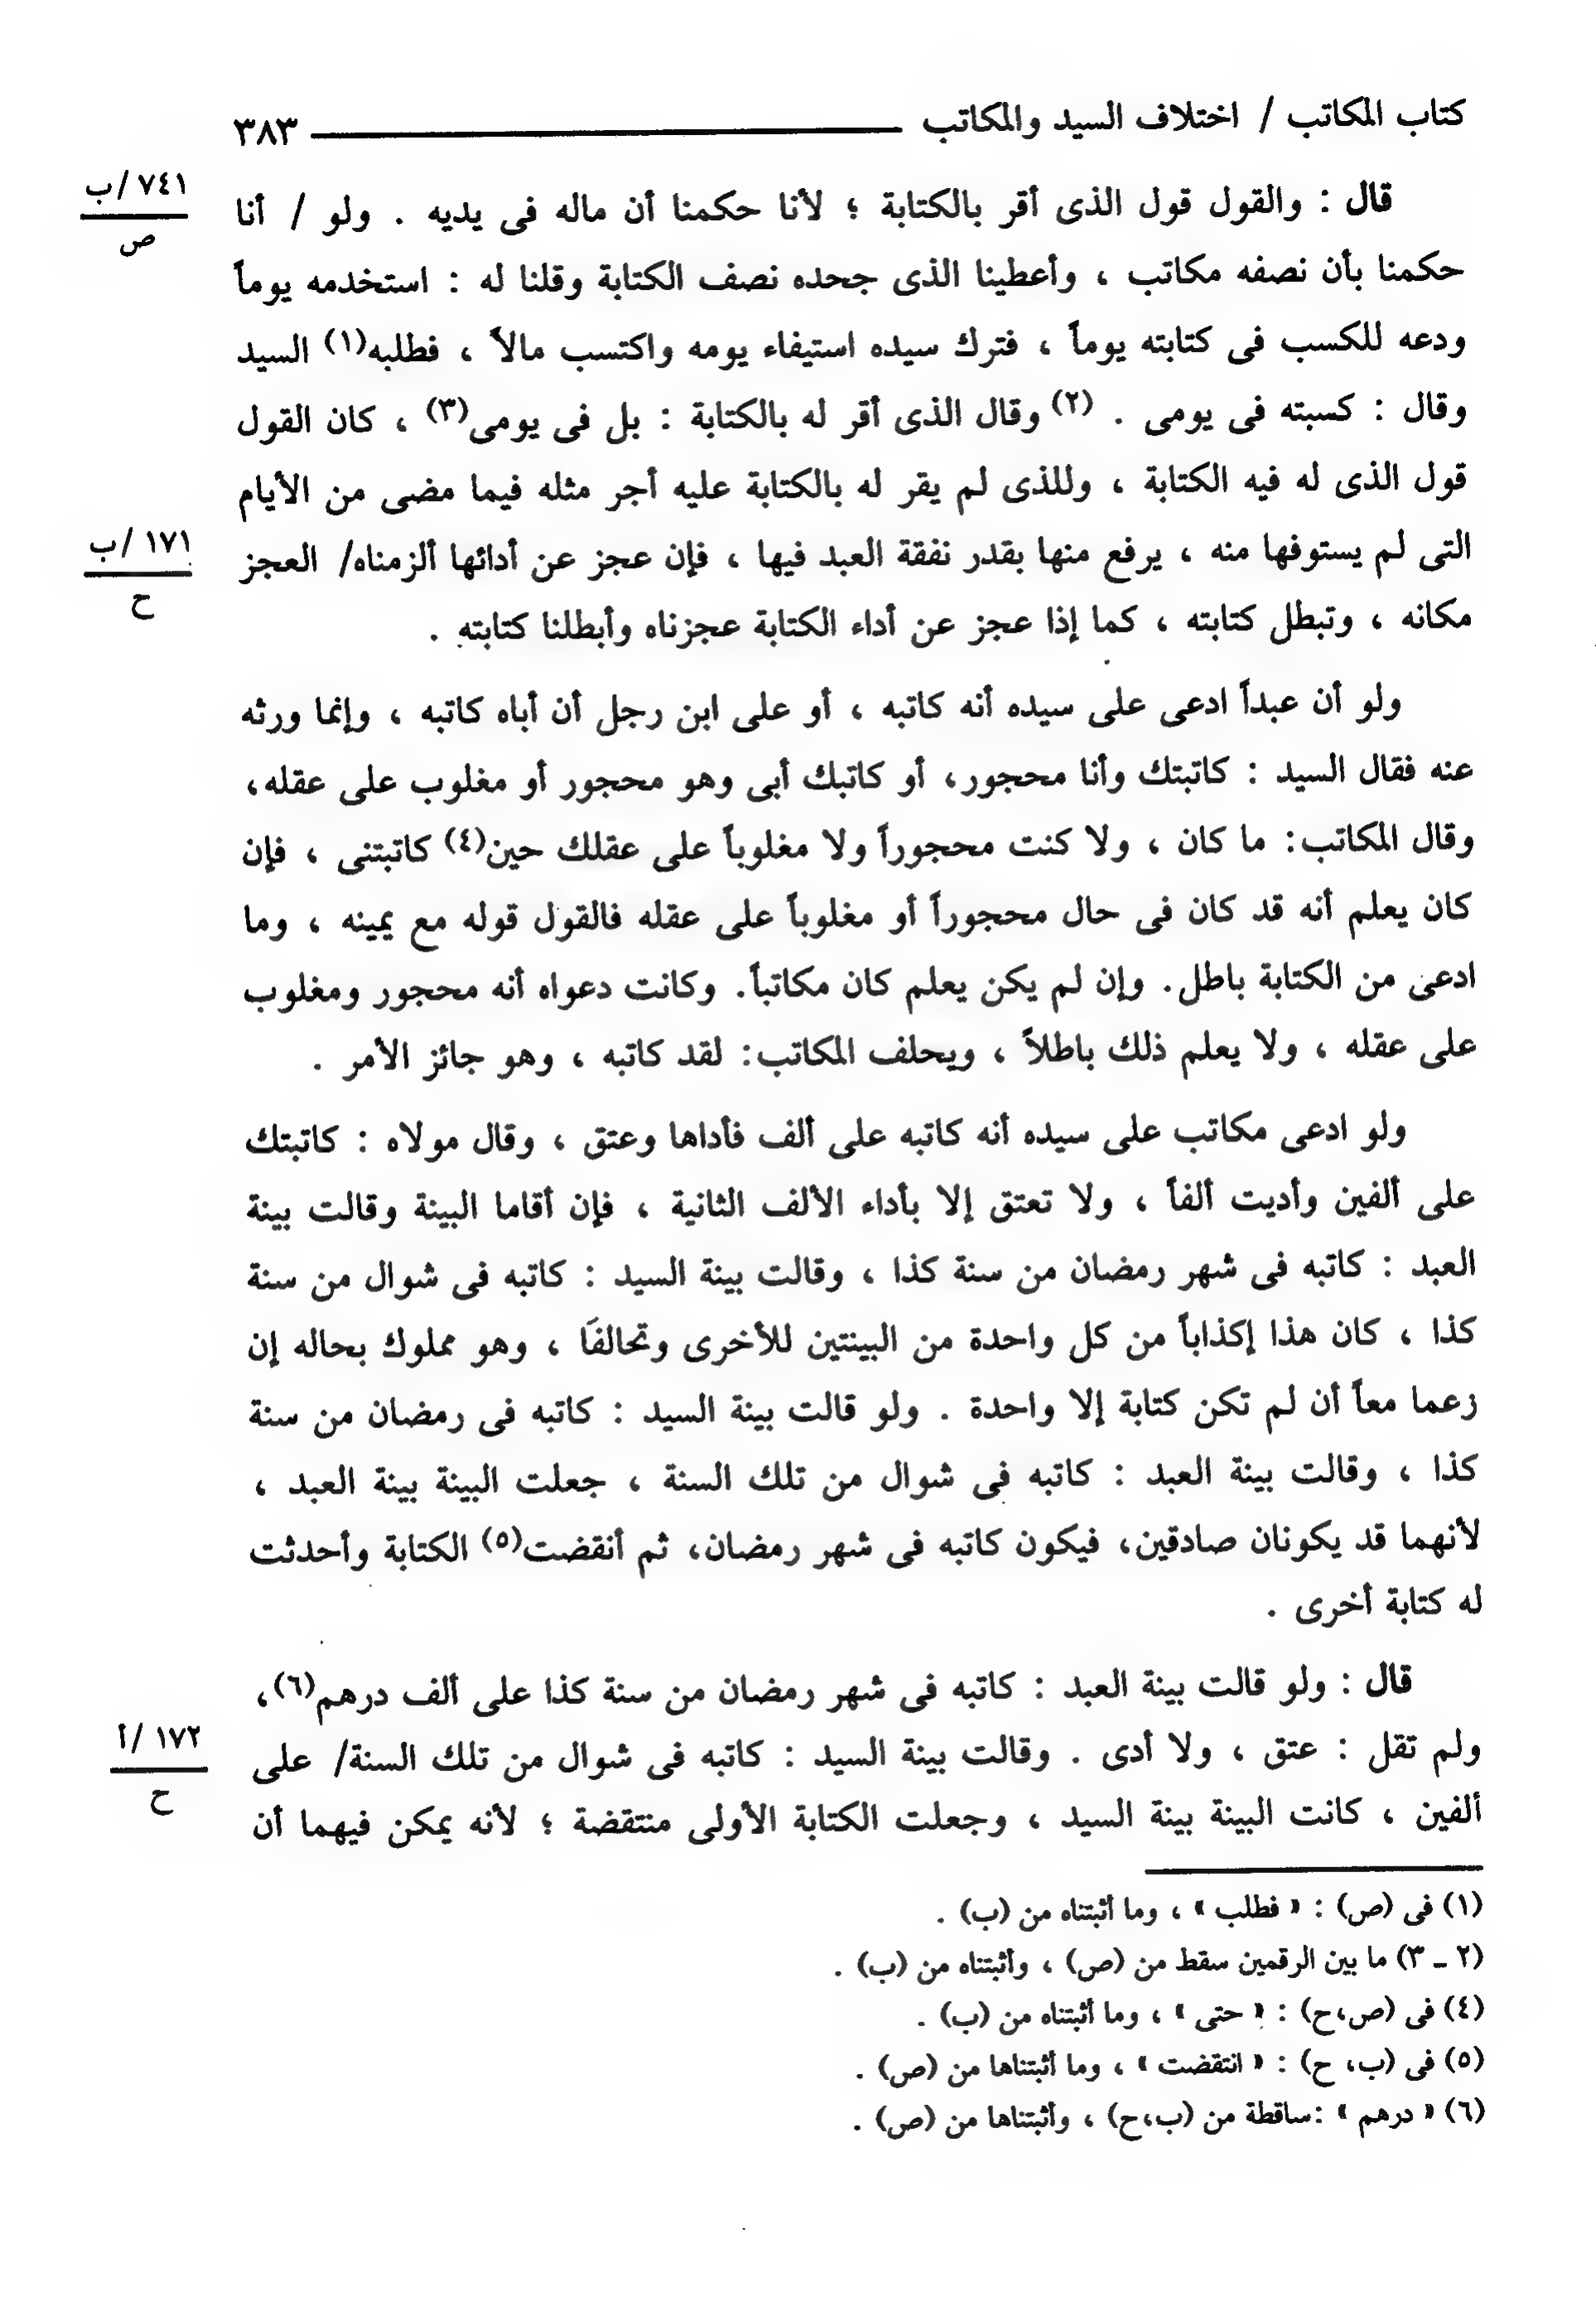 كتاب المكاتب / اختلاف السيد والمكاتب ــــــــــــ ٣٨٣
قال : والقول قول الذى أقر بالكتابة ؛ لأنا حكمنا أن ماله فى يديه . ولو / أنا
٧٤١ /ب
ص
حكمنا بأن نصفه مكاتب ، وأعطينا الذى جحده نصف الكتابة وقلنا له : استخدمه يوماً
ودعه للكسب فى كتابته يوماً ، فترك سيده استيفاء يومه واكتسب مالاً ، فطلبه(١) السيد
وقال : كسبته فى يومى . (٢) وقال الذى أقر له بالكتابة : بل فى يومى(٣) ، كان القول
قول الذى له فيه الكتابة ، وللذى لم يقر له بالكتابة عليه أجر مثله فيما مضى من الأيام
التى لم يستوفها منه ، يرفع منها بقدر نفقة العبد فيها ، فإن عجز عن أدائها ألزمناه/ العجز
١٧١ /ب
ح
مكانه ، وتبطل كتابته ، كما إذا عجز عن أداء الكتابة عجزناه وأبطلنا كتابته .
ولو أن عبداً ادعى على سيده أنه كاتبه ، أو على ابن رجل أن أباه كاتبه ، وإنما ورثه
عنه فقال السيد : كاتبتك وأنا محجور، أو كاتبك أبى وهو محجور أو مغلوب على عقله،
وقال المكاتب: ما كان ، ولا كنت محجوراً ولا مغلوباً على عقلك حين(٤) كاتبتنى ، فإن
كان يعلم أنه قد كان فى حال محجوراً أو مغلوباً على عقله فالقول قوله مع يمينه ، وما
ادعى من الكتابة باطل. وإن لم يكن يعلم كان مكاتباً. وكانت دعواه أنه محجور ومغلوب
على عقله ، ولا يعلم ذلك باطلاً ، ويحلف المكاتب: لقد كاتبه ، وهو جائز الأمر .
ولو ادعى مكاتب على سيده أنه كاتبه على ألف فأداها وعتق ، وقال مولاه : كاتبتك
على ألفين وأديت ألفاً ، ولا تعتق إلا بأداء الألف الثانية ، فإن أقاما البينة وقالت بينة
العبد : كاتبه فى شهر رمضان من سنة كذا ، وقالت بينة السيد : كاتبه فى شوال من سنة
كذا ، كان هذا إكذاباً من كل واحدة من البينتين للأخرى وتحالفَا ، وهو مملوك بحاله إن
زعما معاً أن لم تكن كتابة إلا واحدة . ولو قالت بينة السيد : كاتبه فى رمضان من سنة
كذا ، وقالت بينة العبد : كاتبه فى شوال من تلك السنة ، جعلت البينة بينة العبد ،
لأنهما قد يكونان صادقين، فيكون كاتبه فى شهر رمضان، ثم أنقضت(٥) الكتابة وأحدثت
له كتابة أخرى .
قال : ولو قالت بينة العبد : كاتبه فى شهر رمضان من سنة كذا على ألف درهم(٦)،
ولم تقل : عتق ، ولا أدى . وقالت بينة السيد : كاتبه فى شوال من تلك السنة/ على
١٧٢ /أ
ح
ألفين ، كانت البينة بينة السيد ، وجعلت الكتابة الأولى منتقضة ؛ لأنه يمكن فيهما أن
(١) فى (ص) : « فطلب » ، وما أثبتناه من (ب) .
(٢ ــ ٣) ما بين الرقمين سقط من (ص) ، وأثبتناه من (ب) .
(٤) فى (ص،ح) : « حتى » ، وما أثبتناه من (ب) .
(٥) فى (ب، ح) : « انتقضت » ، وما أثبتناها من (ص) .
(٦) « درهم » :ساقطة من (ب،ح) ، وأثبتناها من (ص) .